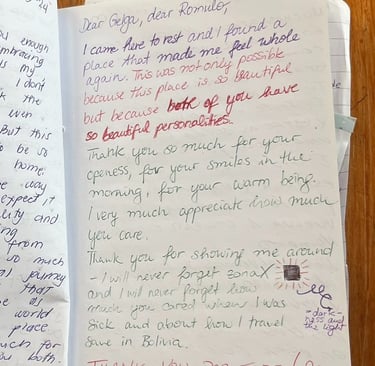 Dear Gelga, dear Romulo,
I came here to rest and I found a
place that made me feel whole
again. This was not only possible
because this place is so beautiful
but because both of you have
so beautiful personalities.
Thank you so much for your
openess, for your smiles in the
morning, for your warm being.
I very much appreciate how much
you care.
Thank you for showing me around
- I will never forget zona X
and I will never forget how
much you cared when I was
sick and about how I travel
save in Bolivia.
→ dark-
ness and
the light
enough
embracing
is my
I don't
the
even
But this
to be so
home.
way
expect it
and
ing
from
so much
journey
that
as
world
place
much for
both.